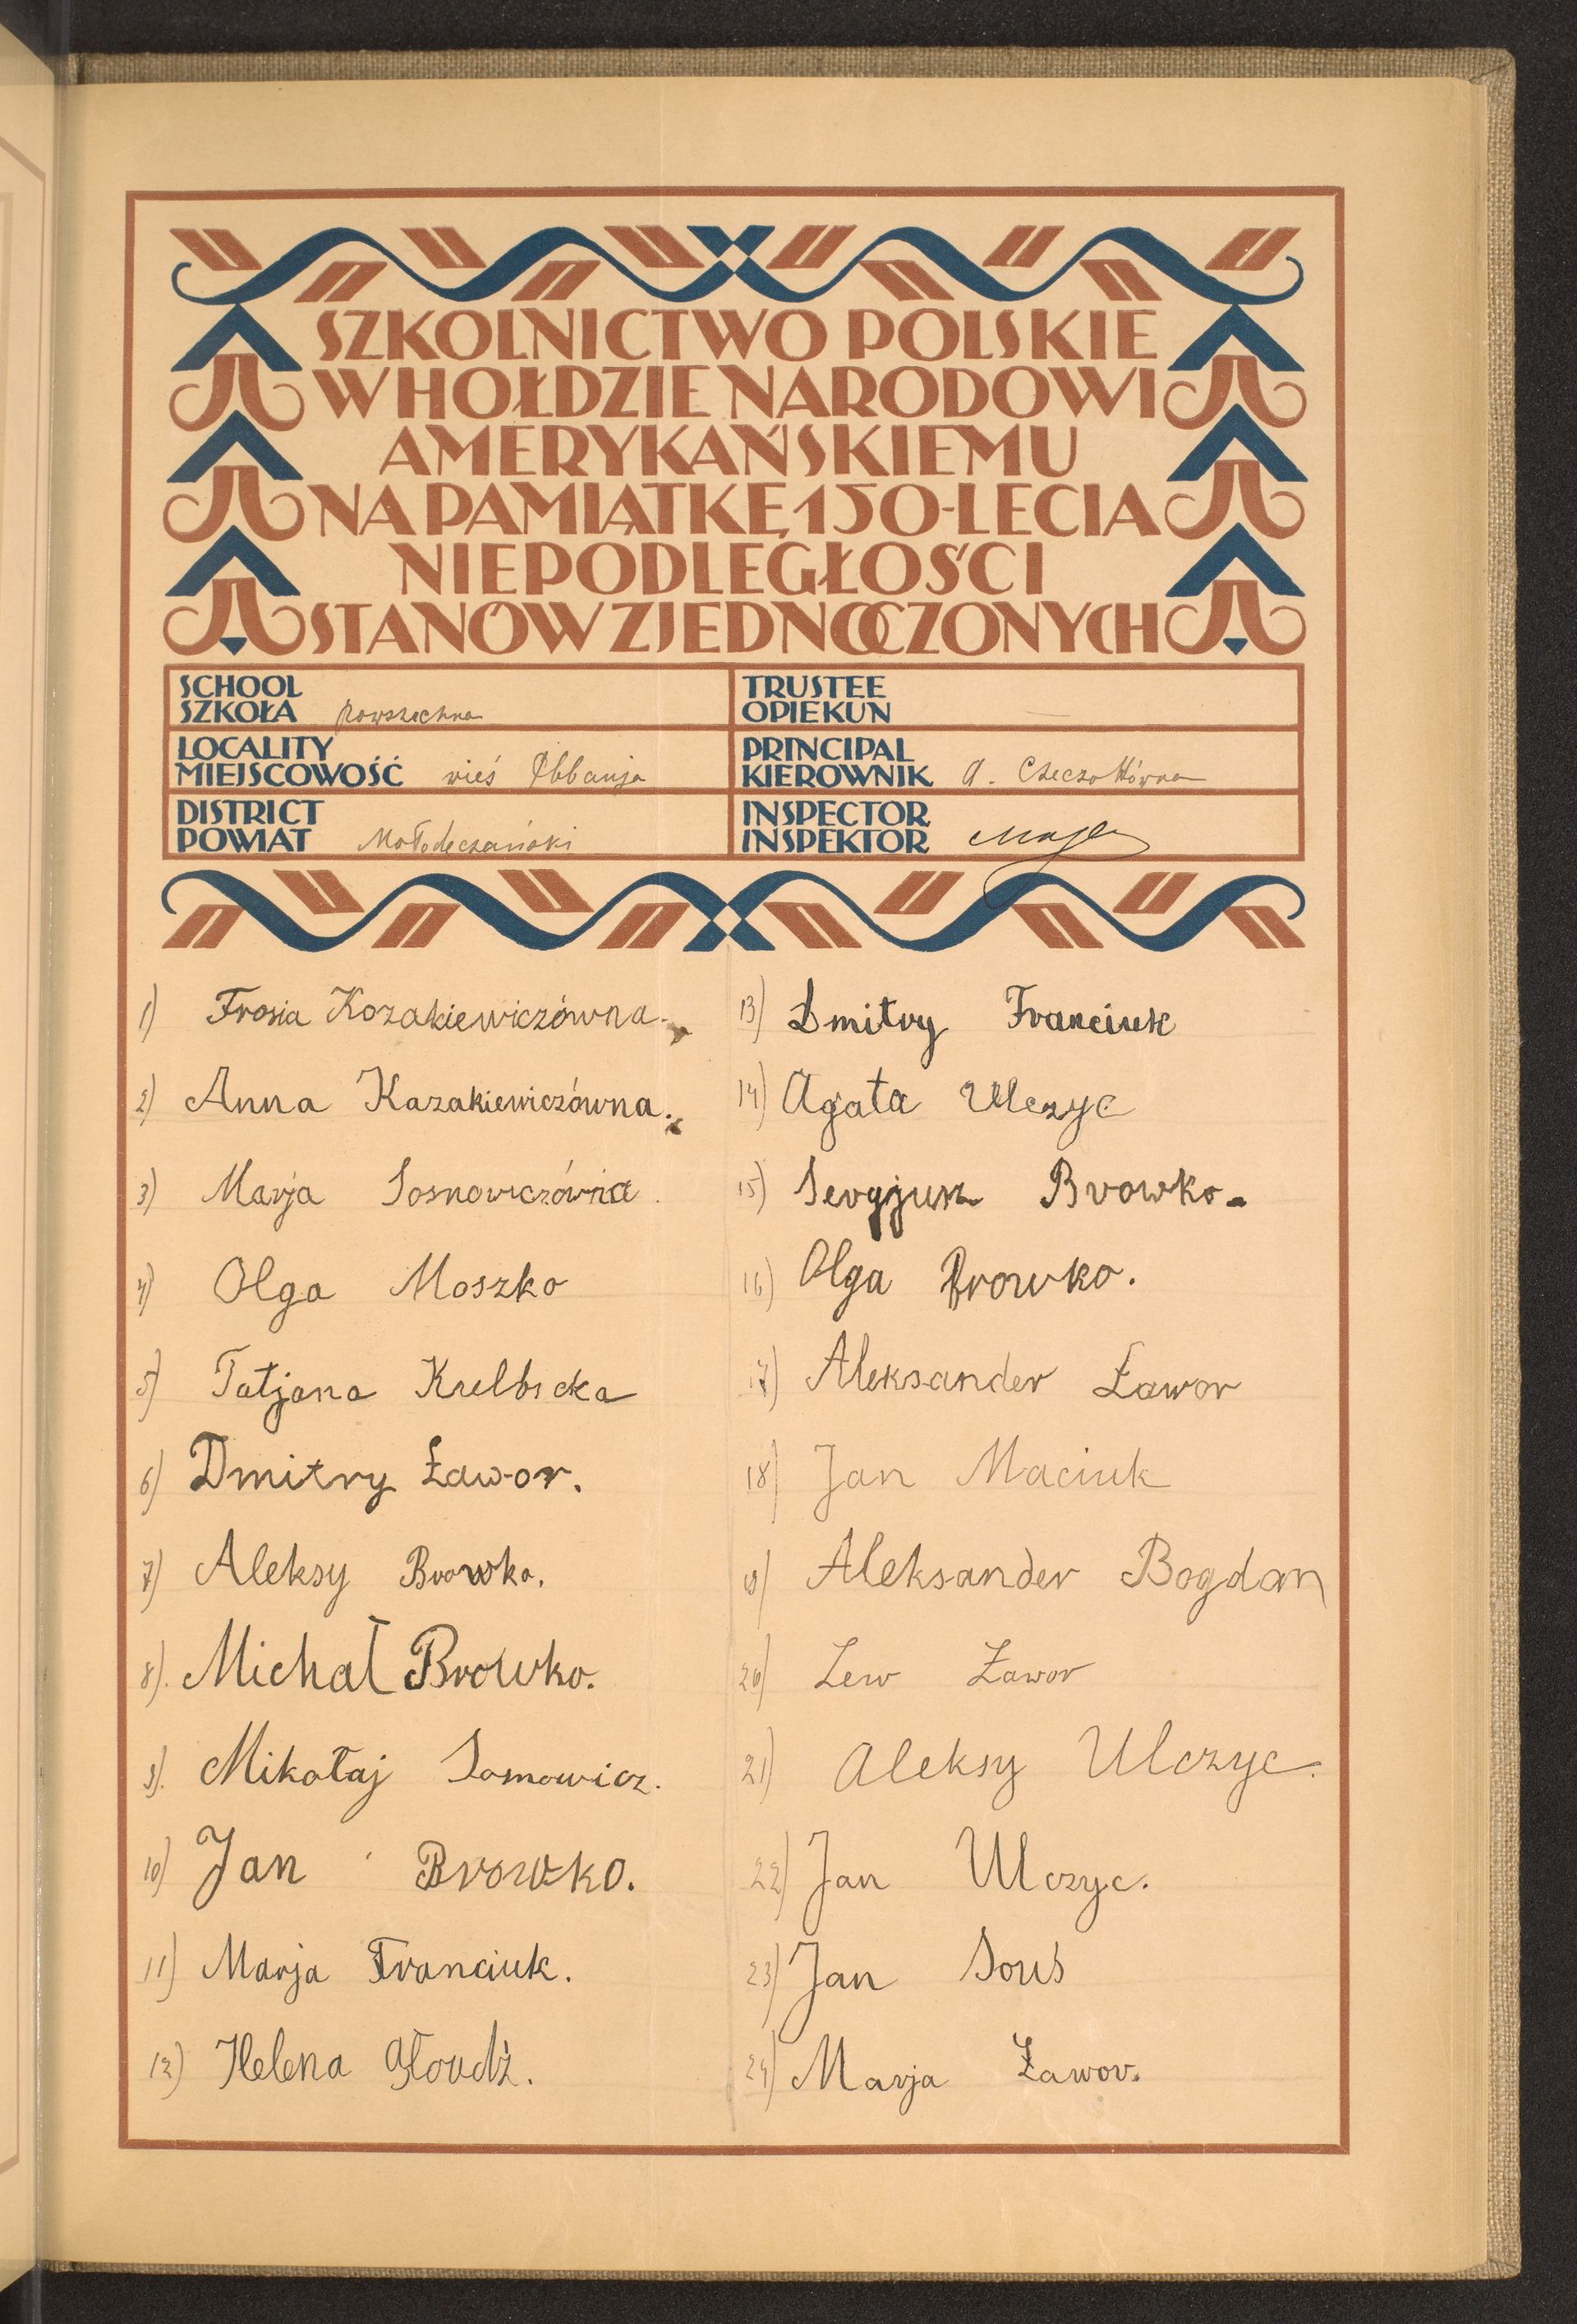 SZKOLNICTWO POLSKIE
W HOŁDZIE NARODOWI
AMERYKAŃSKIEMU
NA PAMIĄTKĘ 150-LECIA
NIEPODLEGŁOŚCI
STANÓW ZJEDNOCZONYCH
SCHOOL
SZKOŁA powszechna
TRUSTEE
OPIEKUN —
LOCALITY
MIEJSCOWOŚĆ wieś
PRINCIPAL
KIEROWNIK A. Czeczottówna
DISTRICT
POWIAT Mołodeczański
INSPECTOR
INSPEKTOR
1) Frosia Kozakiewiczówna.
2) Anna Kazakiewiczówna.
3) Marja Sosnowiczówna.
4) Olga Moszko
5) Tatjana
6) Dmitry Ławor.
7) Aleksy Browko.
8). Michał Browko.
9). Mikołaj Sosnowicz.
10) Jan Browko.
11) Marja Franciuk.
12) Helena Głoudź.
13) Dmitry Franciuk
14) Agata Ulczyc
15) Sergjusz Browko.
16) Olga Browko.
17) Aleksander Ławor
18) Jan Maciuk
19) Aleksander Bogdan
20) Lew Ławor
21) Aleksy Ulczyc.
22) Jan Ulczyc.
23) Jan Souś
24) Marja Ławor.